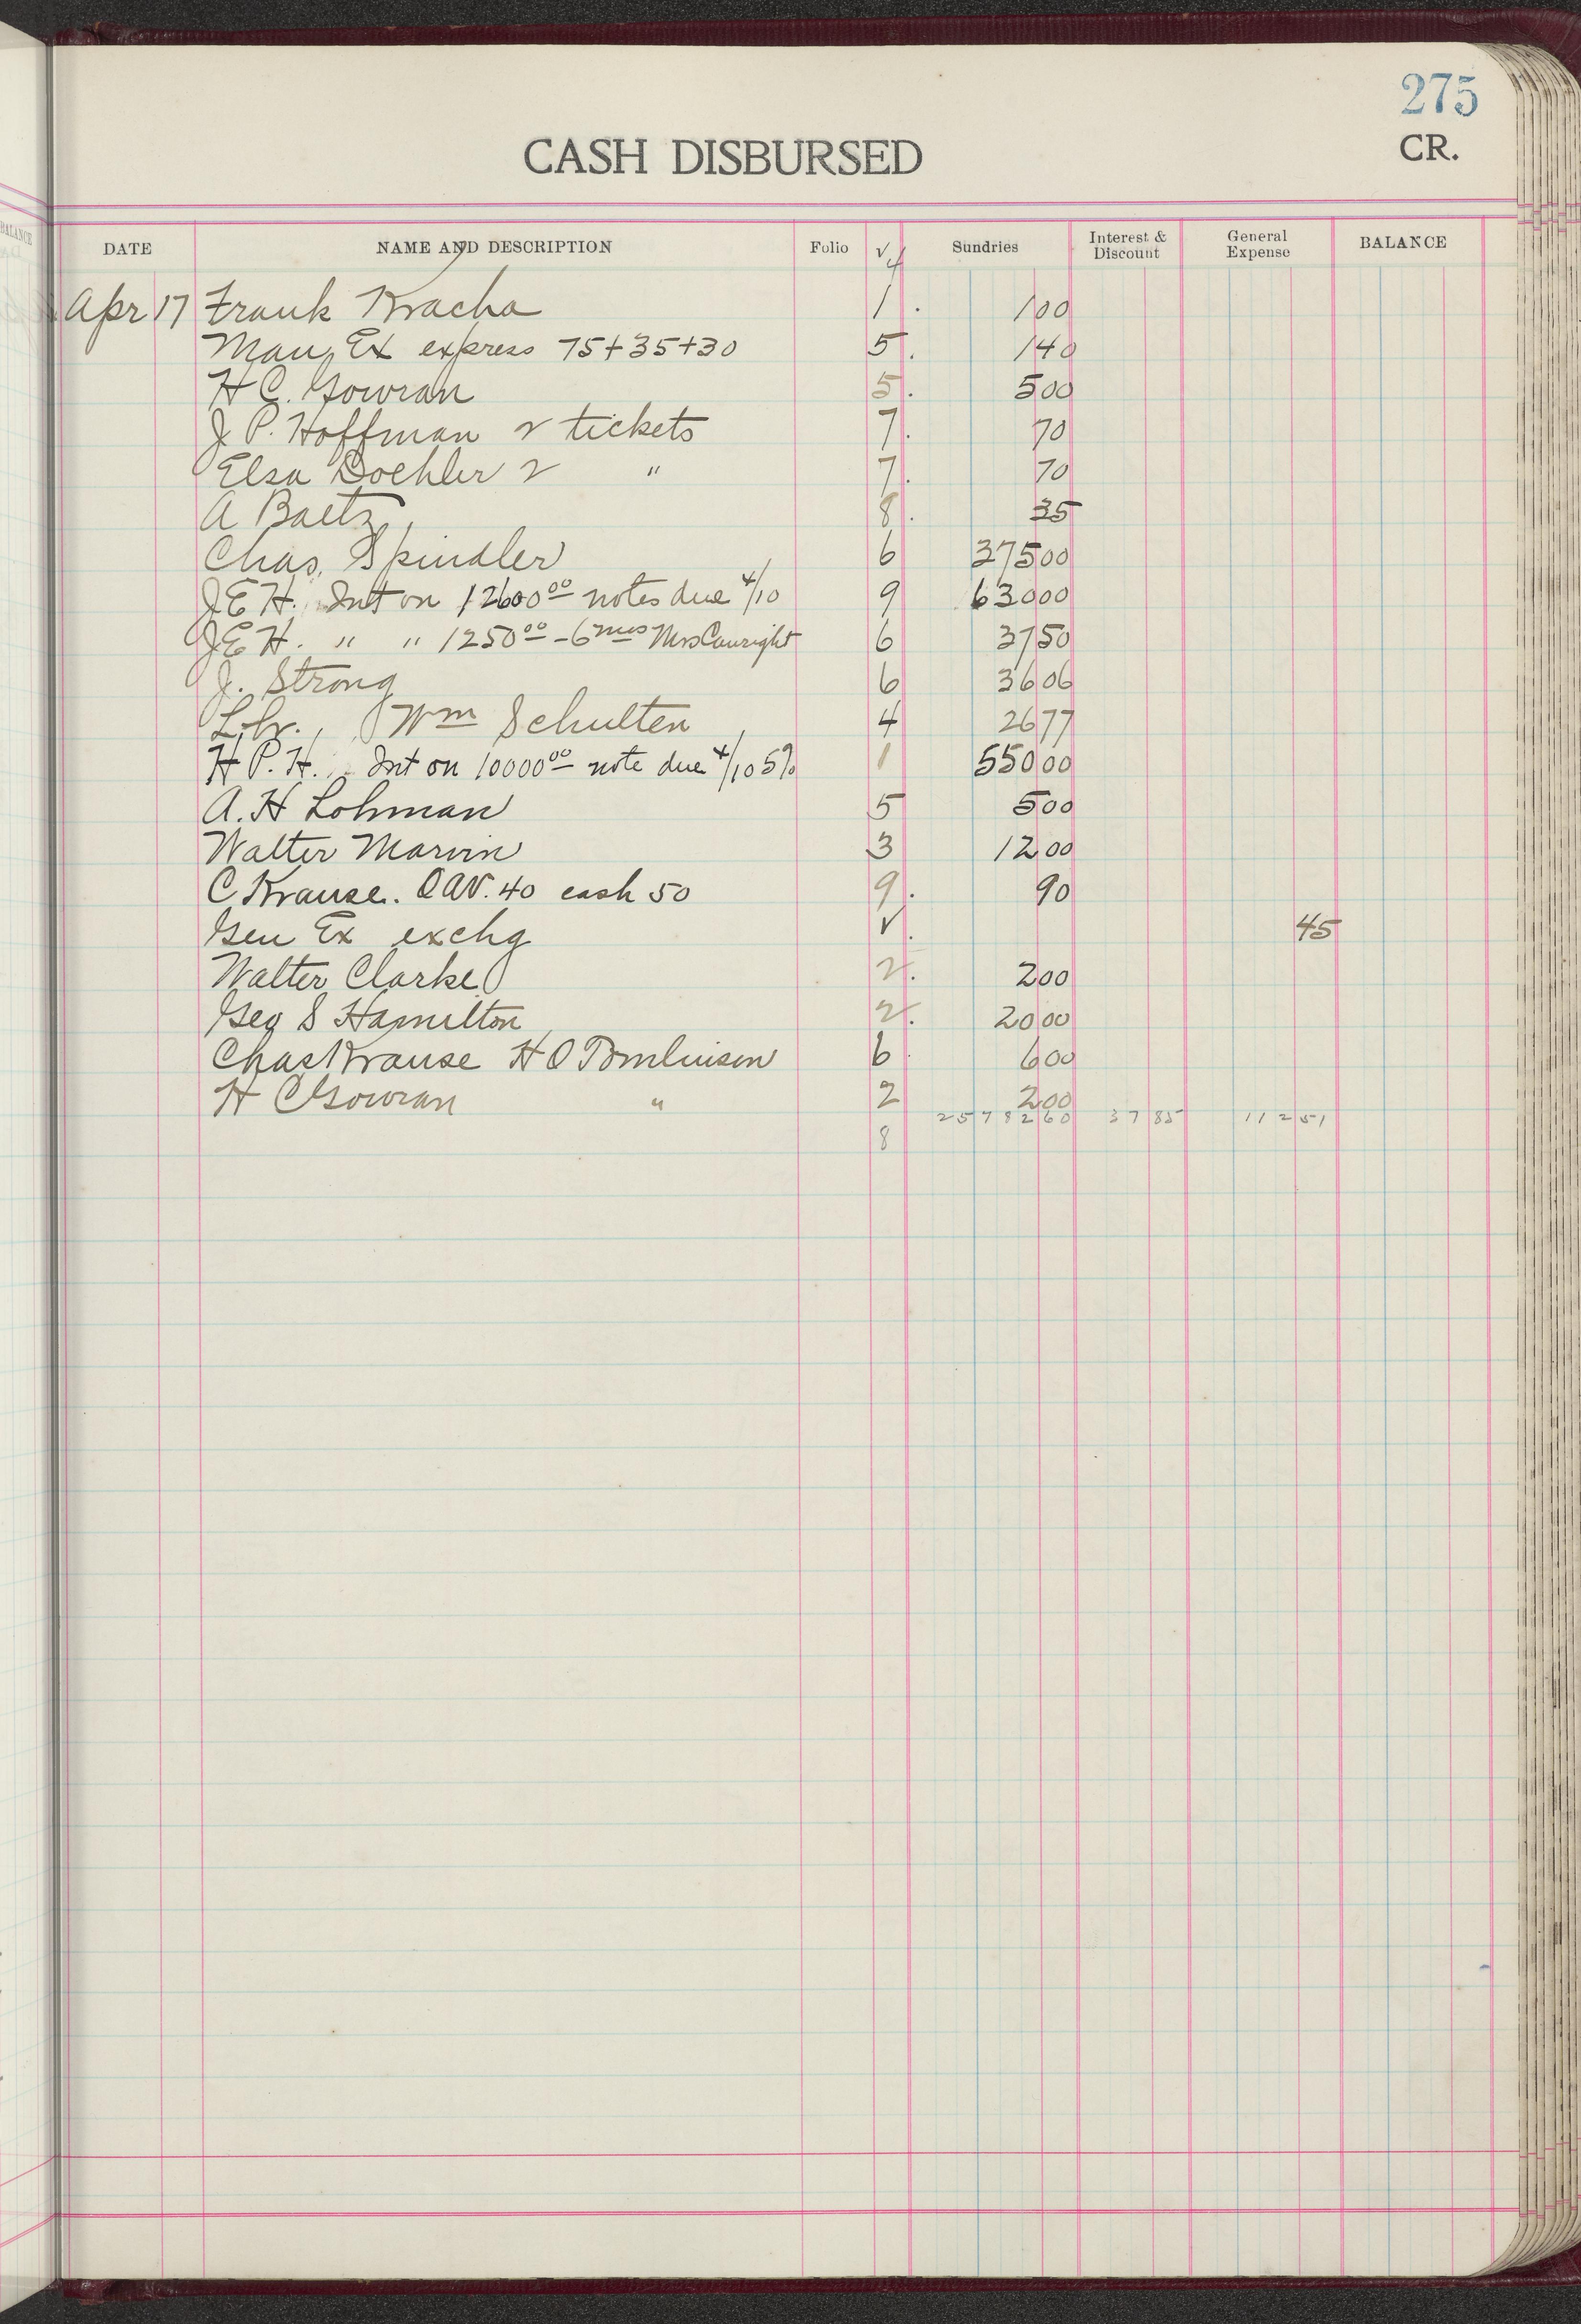 275
CASH DISBURSED
CR.
DATE NAME AND DESCRIPTION Folio √ Sundries Interest & Discount General Expense BALANCE
4
Apr 17 Frank Kracha 1. 100
Man, Ex express 75+35+30 5. 140
H C. Gowran 5. 500
J P. Hoffman 2 tickets 7. 70
Elsa Doehler 2 " 7. 70
A Baetz, 8. 35
Chas. Spindler 6 37500
J E H. Int on 12600 00 notes due 4/10 9 63000
J E H. " " 1250 00 - 6 mos Mrs 6 3750
J. Strong 6 3606
Wm Schulten 4 2677
H P. H. Int on 10000 00 note due 4/10 5% 1 55000
A. H Lohman 5 500
Walter Marvin 3 1200
C Krause. 40 cash 50 9. 90
Gen Ex exchg √. 45
Walter Clarke 2. 200
Geo S Hamilton 2. 2000
Chas Krause H O Tomlinson 6 600
H C Gowran " 2 200
2578260 3785 11251
8
BALANCE